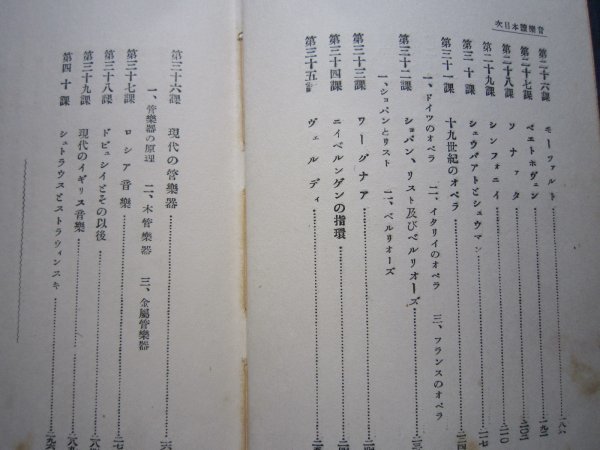 音樂讀本目次
第二十六課 モーツァルト
第二十七課 ベエトホヴェン
第二十八課 ソナタ
第二十九課 シンフォニイ
第三十課 シュウバアトとシュウマン
第三十一課 十九世紀のオペラ
一、ドイツのオペラ 二、イタリイのオペラ 三、フランスのオペラ
第三十二課 ショパン、リスト及びベルリオーズ
一、ショパンとリスト 二、ベルリオーズ
第三十三課 ワーグナア
第三十四課 ニイベルンゲンの指環
第三十五課 ヴェルディ
第三十六課 現代の管樂器
一、管樂器の原理 二、木管樂器 三、金屬管樂器
第三十七課 ロシア音樂
第三十八課 ドビュシイとその以後
第三十九課 現代のイギリス音樂
第四十課 シュトラウスとストラウィンスキ